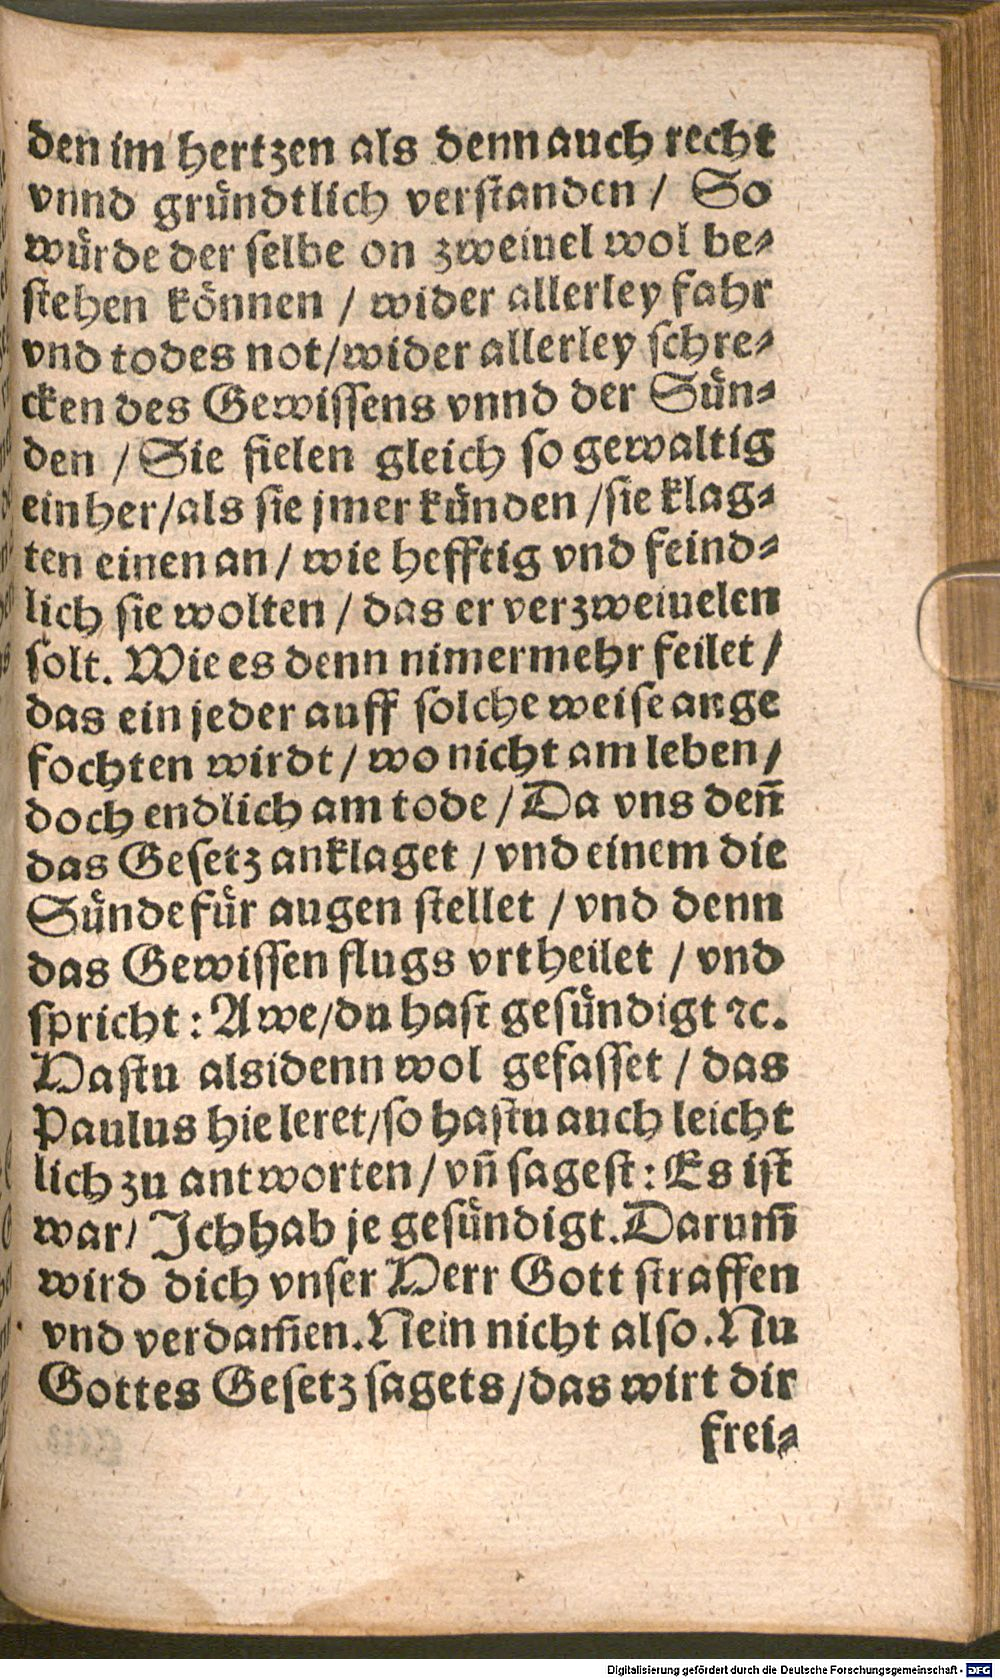 den im hertzen als denn auch recht
vnnd gründtlich verstanden / So
würde der selbe on zweiuel wol be⸗
stehen können / wider allerley fahr
vnd todes not/wider allerley schre⸗
cken des Gewissens vnnd der Sün⸗
den / Sie fielen gleich so gewaltig
einher/als sie jmer künden /sie klag⸗
ten einen an / wie hefftig vnd feind⸗
lich sie wolten / das er verzweiuelen
solt. Wie es denn nimermehr feilet /
das ein jeder auff solche weise ange
fochten wirdt / wo nicht am leben /
doch endlich am tode / Da vns deñ
das Gesetz anklaget / vnd einem die
Sünde für augen stellet / vnd denn
das Gewissen flugs vrtheilet / vnd
spricht : Awe/du hast gesündigt ꝛc.
Hastu alsidenn wol gefasset / das
Paulus hie leret/so hastu auch leicht
lich zu antworten / vñ sagest : Es ist
war/ Ich hab je gesündigt. Darum̃
wird dich vnser Herr Gott straffen
vnd verdam̃en. Nein nicht also. Nu
Gottes Gesetz sagets /das wirt dir
frei⸗
Digitalisierung gefördert durch die Deutsche Forschungsgemeinschaft - DFG